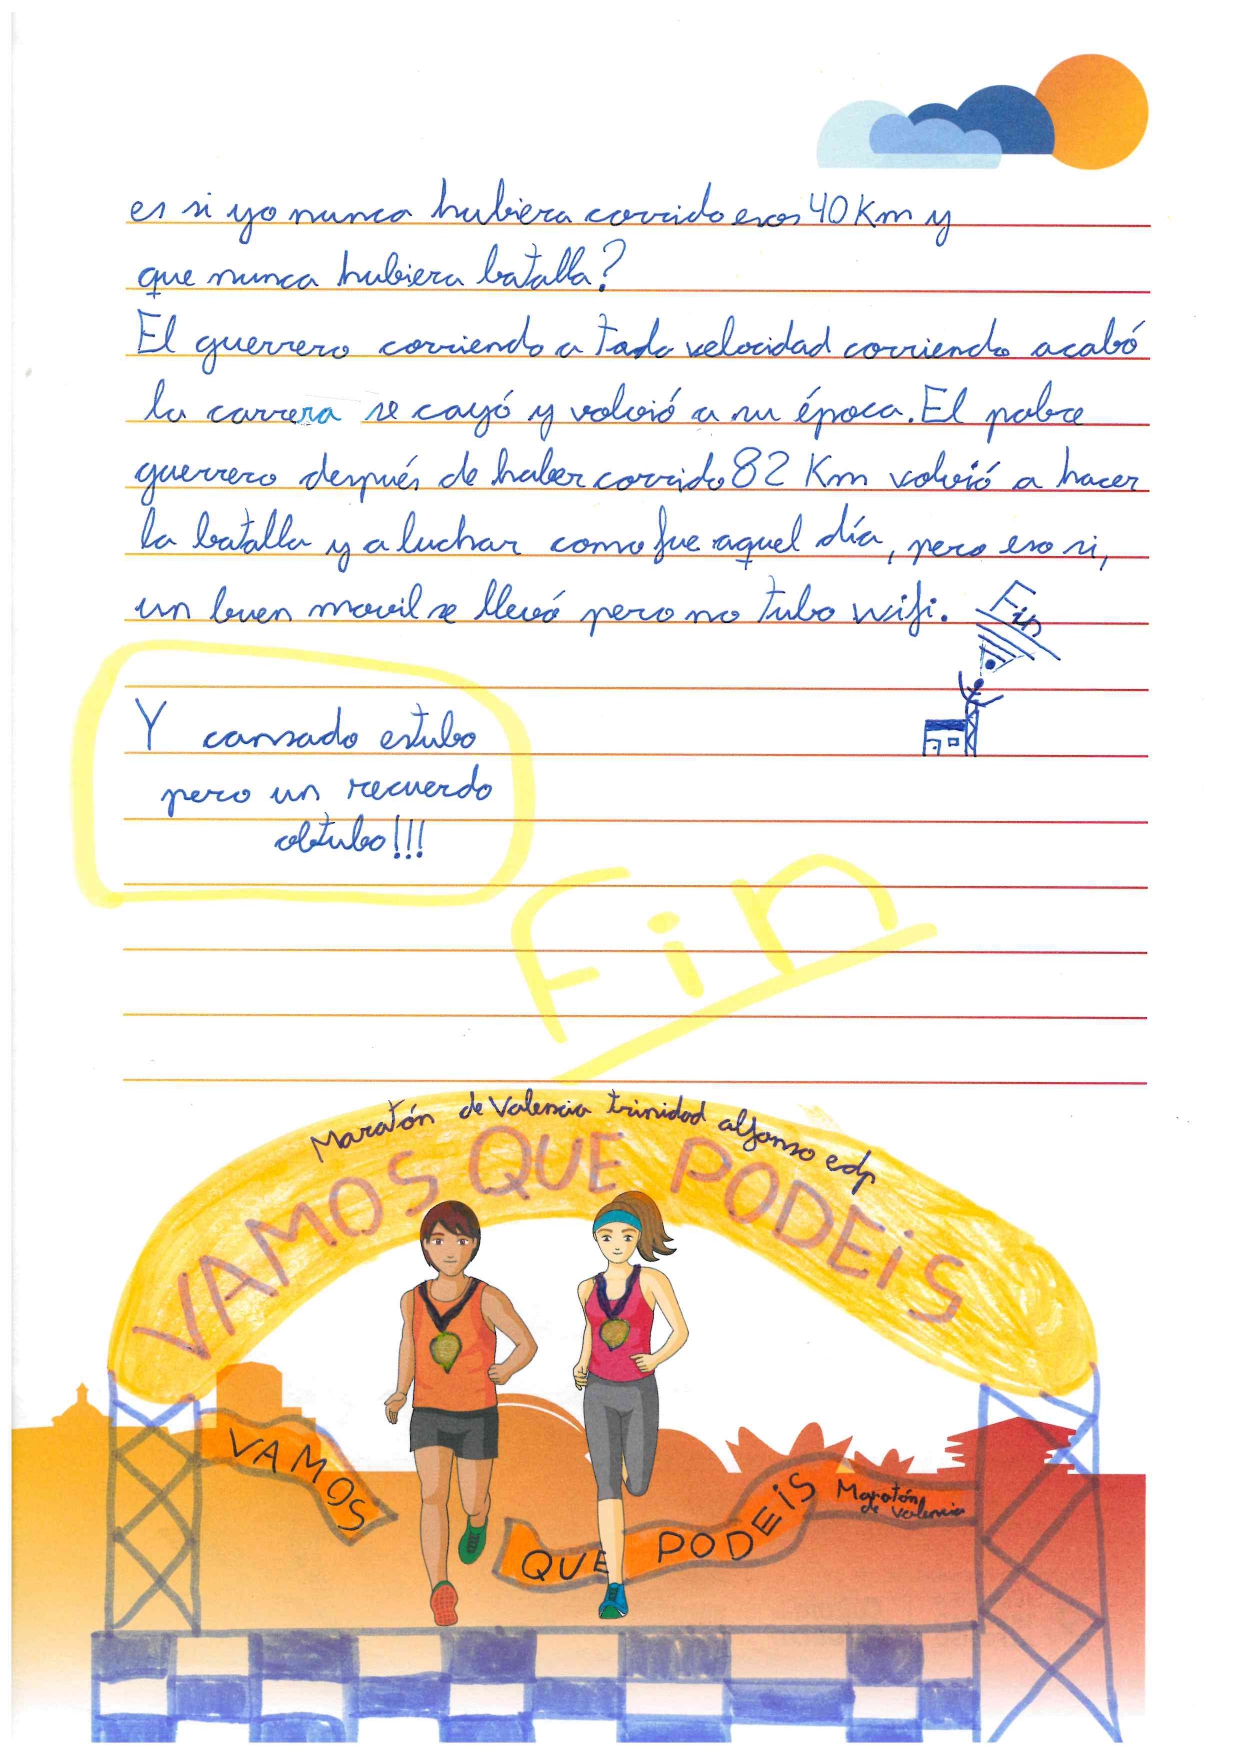 es si yo nunca hubiera corrido esos 40 Km y
que nunca hubiera batalla?
El guerrero corriendo a toda velocidad corriendo acabó
la carrera se cayó y volvió a su época. El pobre
guerrero después de haber corrido 82 Km volvió a hacer
la batalla y a luchar como fue aquel día, pero eso si,
un buen movil se llevó pero no tubo wifi.
Fin
Y cansado estubo
pero un recuerdo
obtubo!!!
Fin
Maratón de Valencia trinidad alfonso edp
VAMOS QUE PODEiS
VAMOS
QUE PODEiS
Maratón
de Valencia